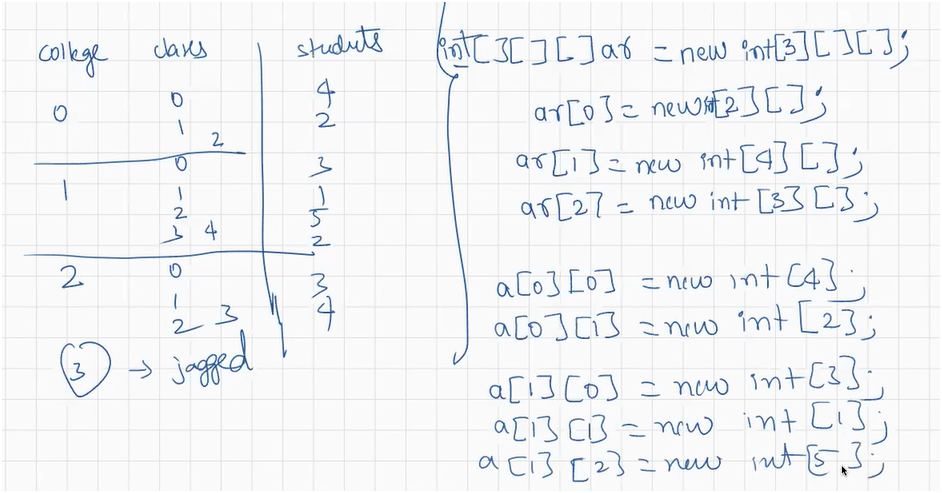 college clases students
0 0 4
1 2
2
0 3
1 1 1
2 5
3 4 2
2 0 3
1 4
2 3
3 → jagged
int[][][] ar = new int[3][][];
ar[0] = new int[2][];
ar[1] = new int[4][];
ar[2] = new int[3][];
a[0][0] = new int[4];
a[0][1] = new int[2];
a[1][0] = new int[3];
a[1][1] = new int[1];
a[1][2] = new int[5];